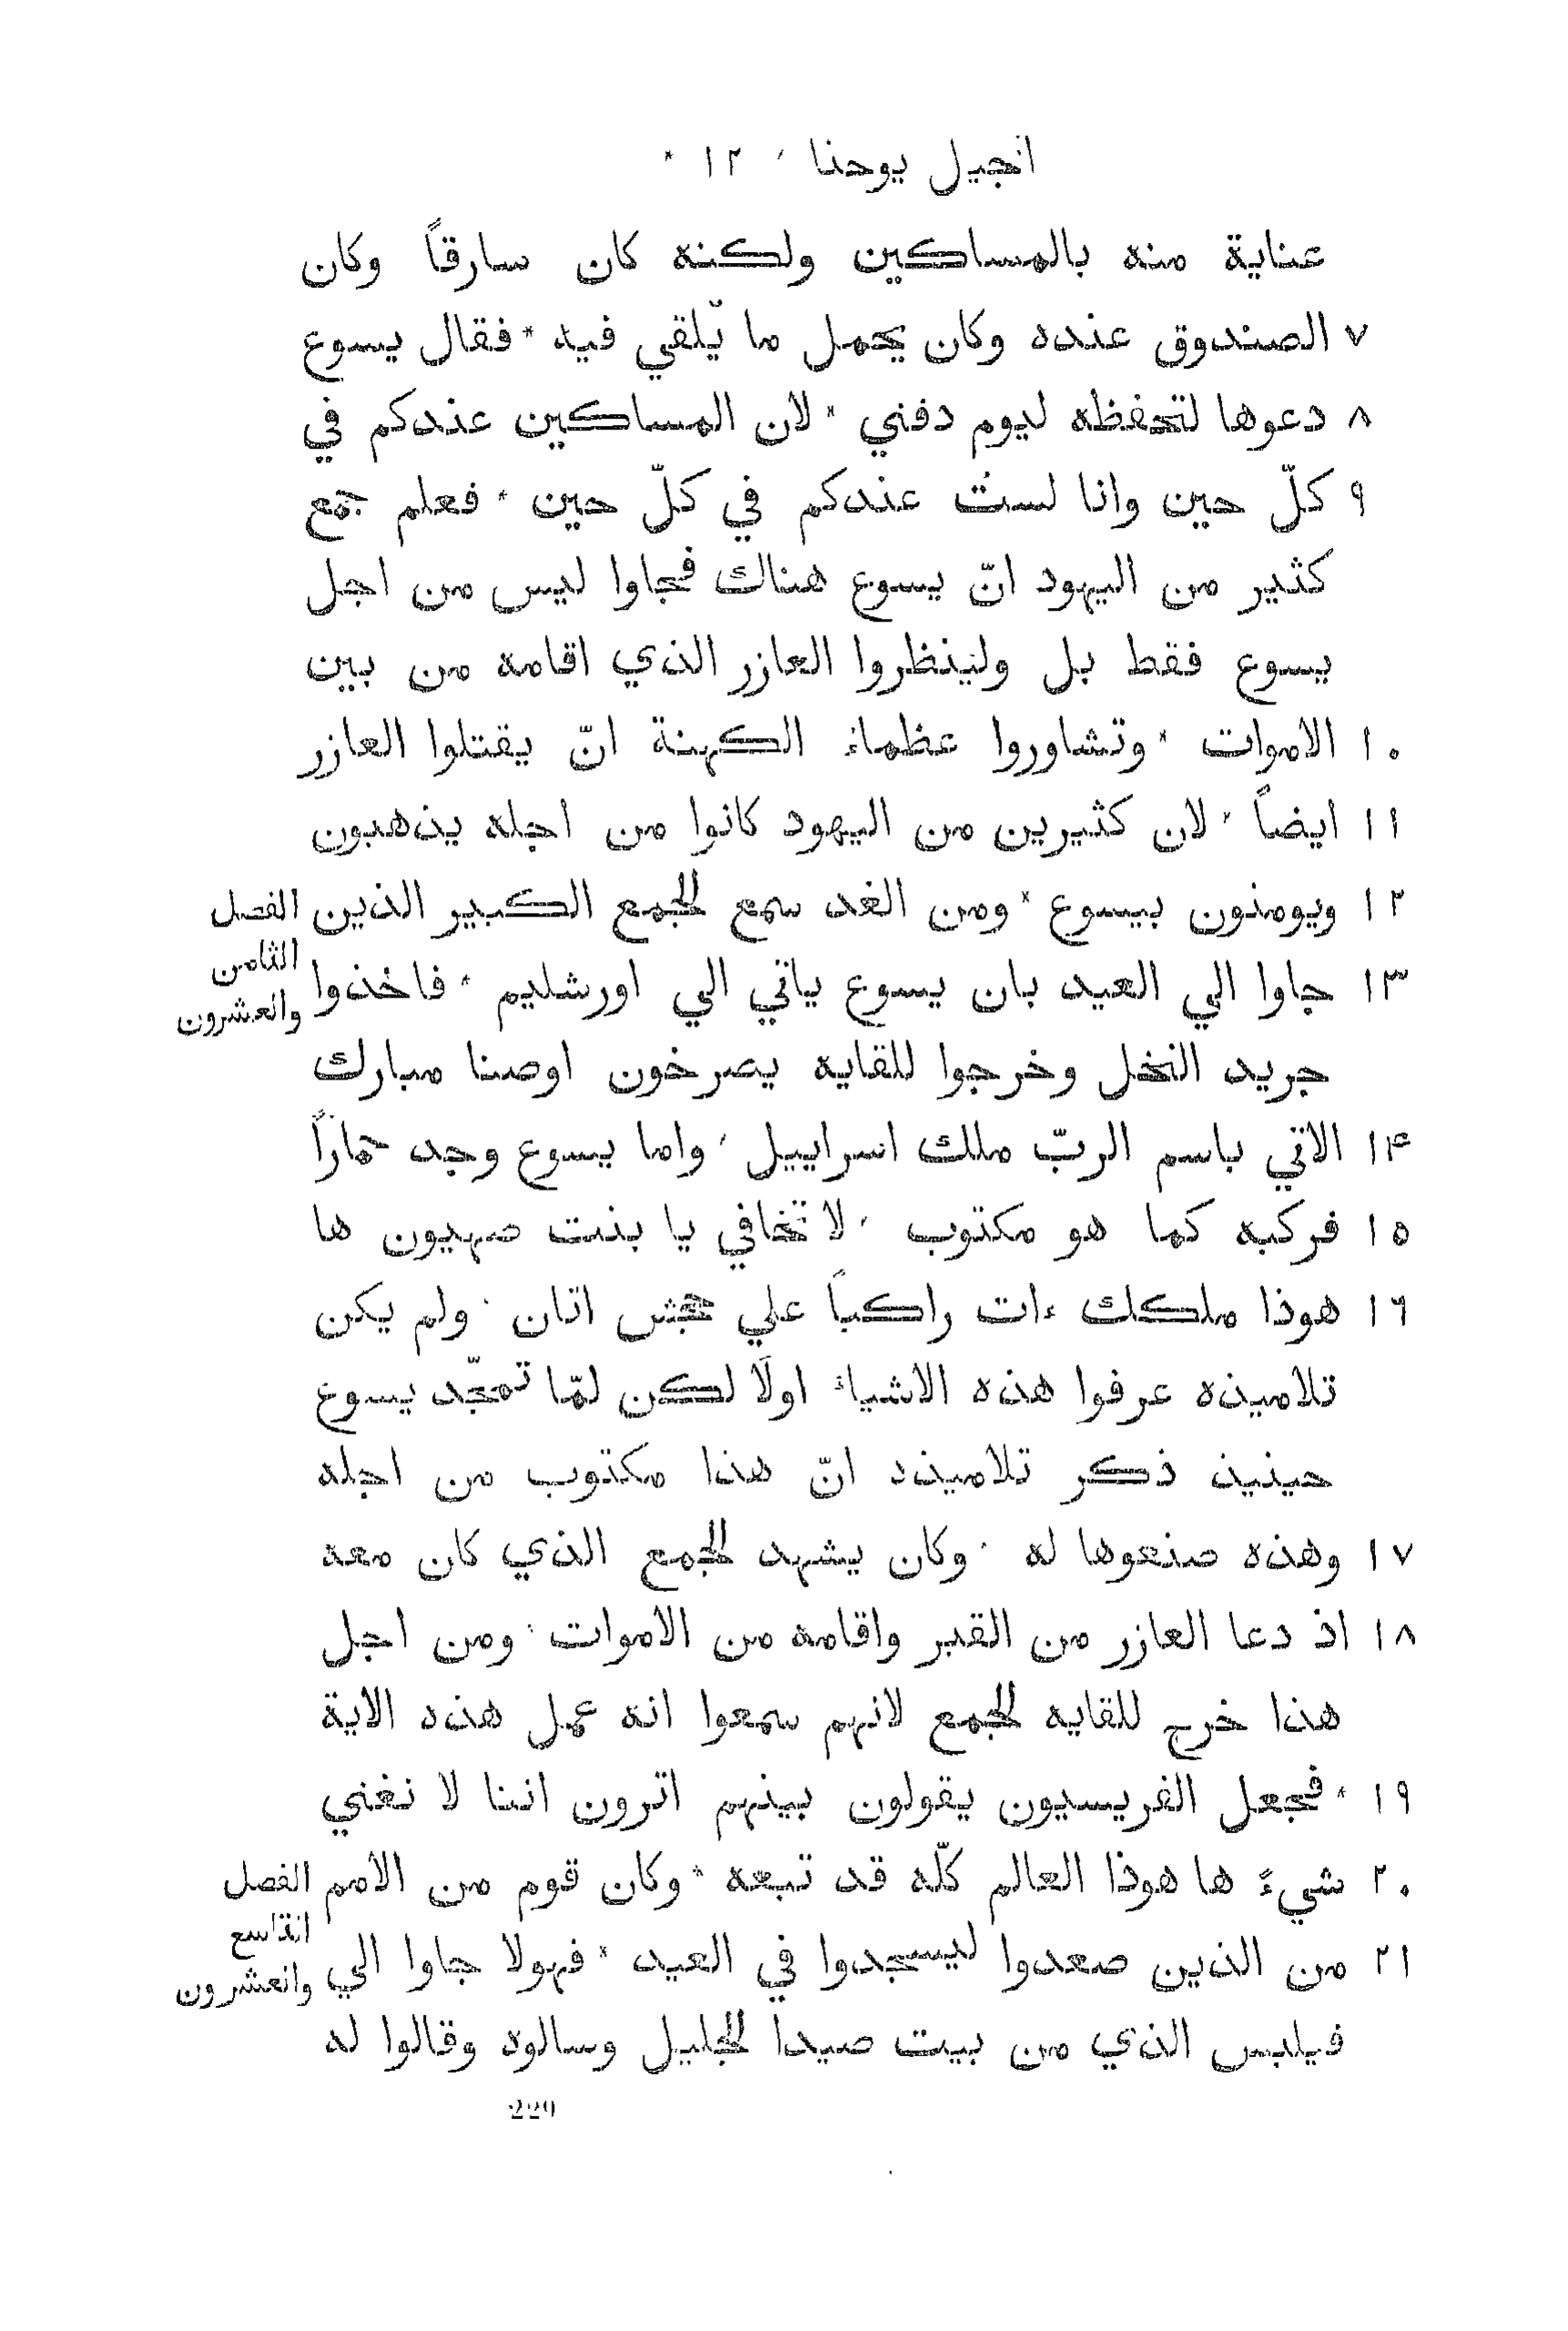 انجيل يوحنا ، ١٢ *
عناية منه بالمساكين ولكنه كان سارقاً وكان
٧ الصندوق عنده وكان يحمل ما يّلقي فيه * فقال يسوع
٨ دعوها لتحفظه ليوم دفني * لان المساكين عندكم في
٩ كلّ حين وانا لست عندكم في كلّ حين * فعلم جمع
كثير من اليهود انّ يسوع هناك فجاوا ليس من اجل
يسوع فقط بل ولينظروا العازر الذي اقامه من بين
١٠ الاموات * وتشاوروا عظماء الكهنة انّ يقتلوا العازر
١١ ايضاً * لان كثيرين من اليهود كانوا من اجله يذهبون
١٢ ويومنون بيسوع * ومن الغد سمع الجمع الكبير الذين
الفصل
الثامن
والعشرون
١٣ جاوا الي العيد بان يسوع ياتي الي اورشليم * فاخذوا
جريد النخل وخرجوا للقايه يصرخون اوصنا مبارك
١٤ الاتي باسم الربّ ملك اسراييل ، واما يسوع وجد حماراً
١٥ فركبه كما هو مكتوب ، لا تخافي يا بنت صهيون ها
١٦ هوذا ملكك ءات راكباً علي جحش اتان ٠ ولم يكن
تلاميذه عرفوا هذه الاشياء اولًا لكن لمّا تمجّد يسوع
حينيذ ذكر تلاميذه انّ هذا مكتوب من اجله
١٧ وهذه صنعوها له ٠ وكان يشهد الجمع الذي كان معه
١٨ اذ دعا العازر من القبر واقامه من الاموات ٠ ومن اجل
هذا خرج للقايه الجمع لانهم سمعوا انه عمل هذه الاية
١٩ * فجعل الفريسيون يقولون بينهم اترون اننا لا نغني
٢٠ شيءً ها هوذا العالم كلّه قد تبعه * وكان قوم من الامم
الفصل
التاسع
والعشرون
٢١ من الذين صعدوا ليسجدوا في العيد * فهولا جاوا الي
فيلبس الذي من بيت صيدا الجليل وسالوه وقالوا له
229